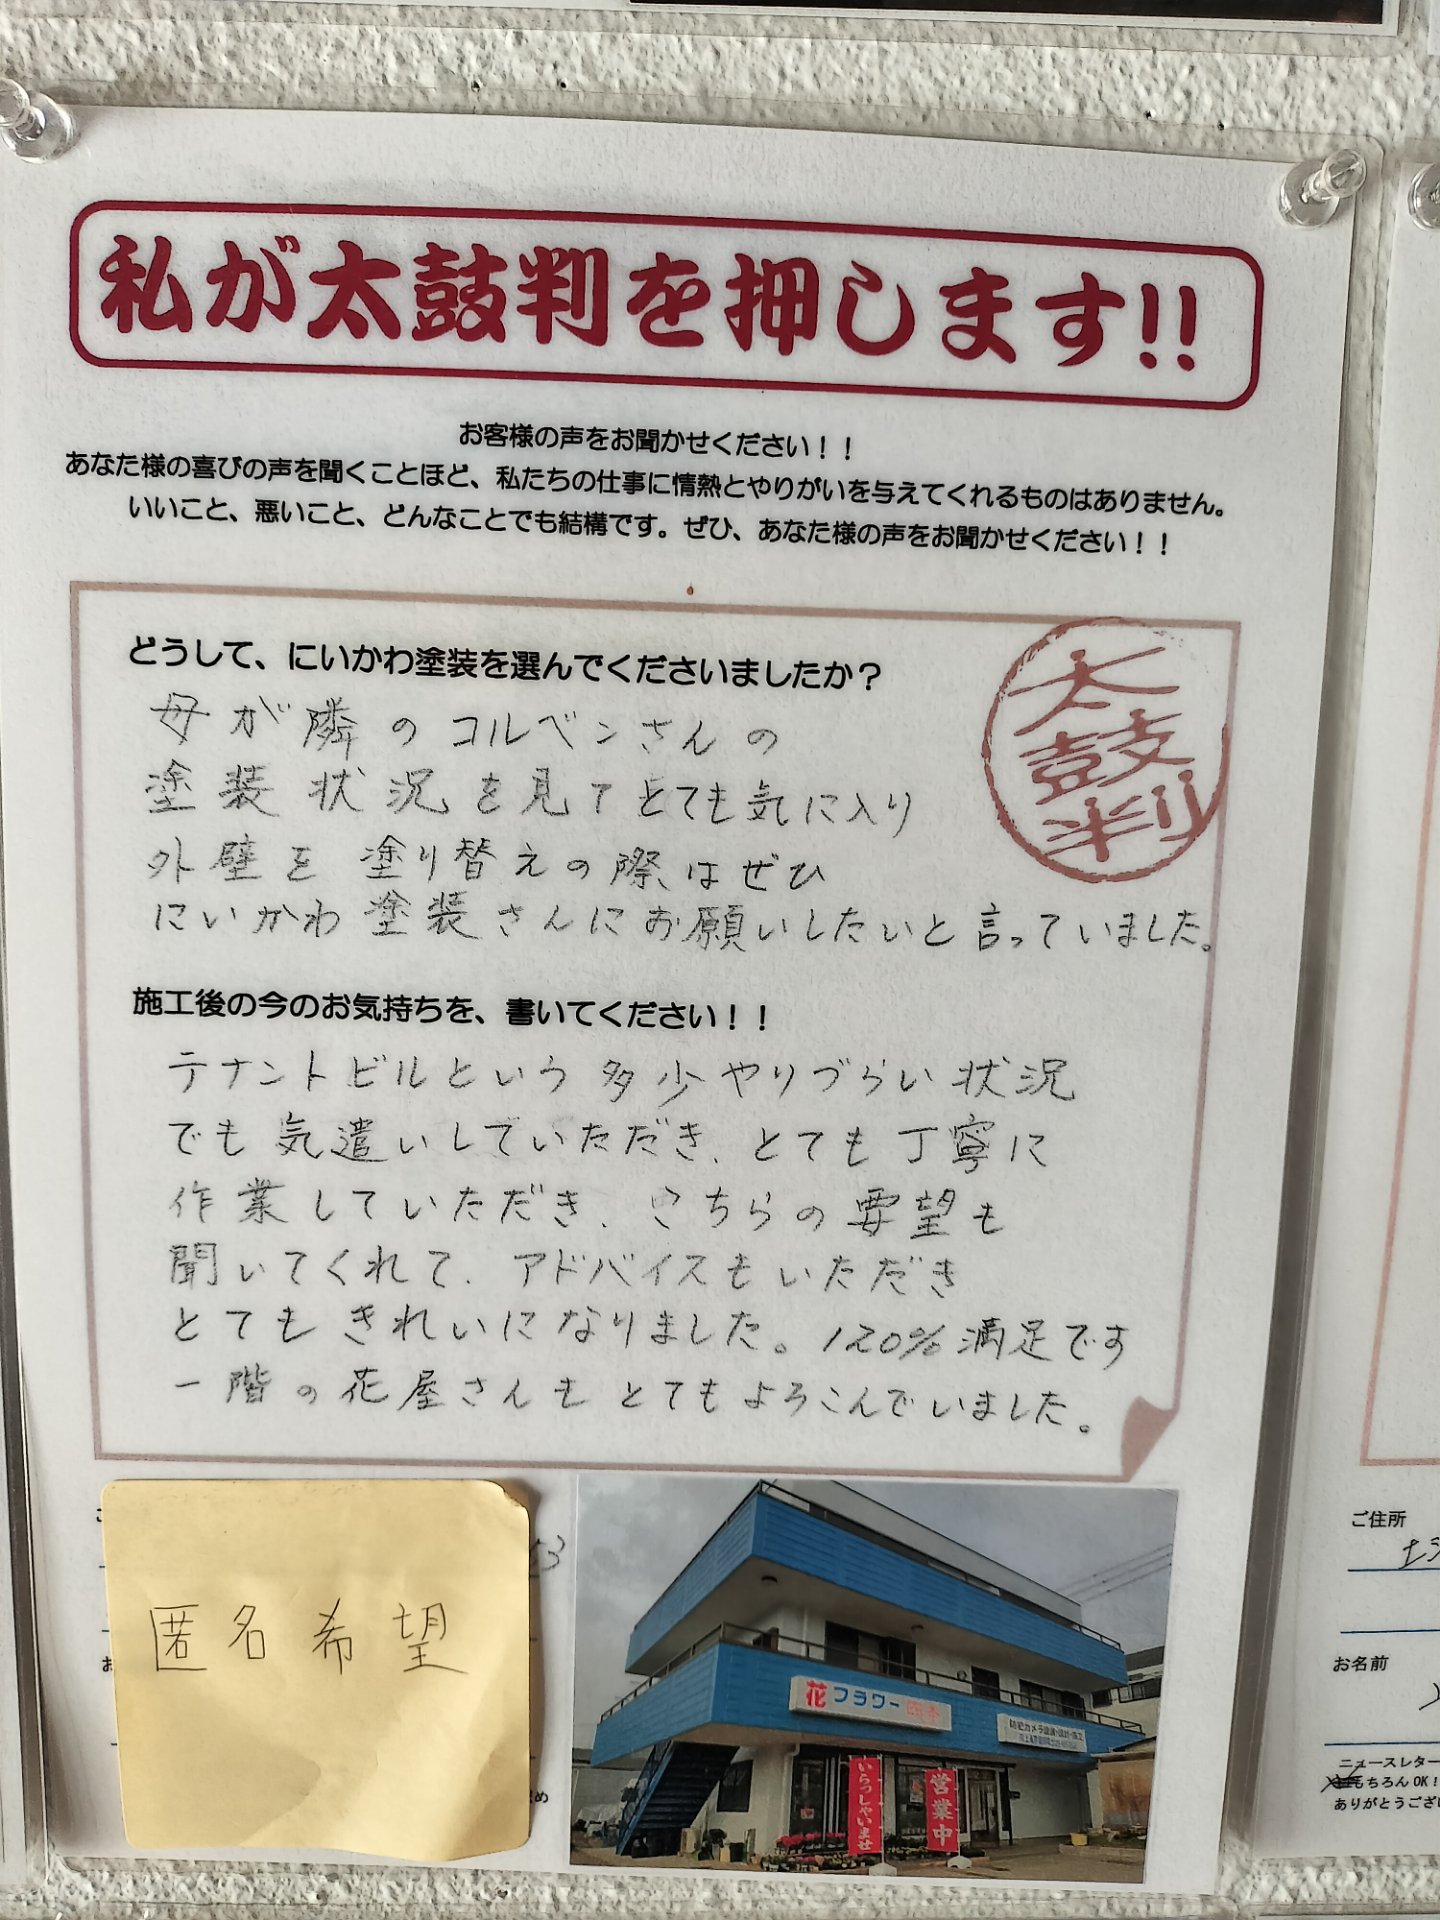 私が太鼓判を押します!!
お客様の声をお聞かせください！！
あなた様の喜びの声を聞くことほど、私たちの仕事に情熱とやりがいを与えてくれるものはありません。
いいこと、悪いこと、どんなことでも結構です。ぜひ、あなた様の声をお聞かせください！！
どうして、にいかわ塗装を選んでくださいましたか？
太鼓判
母が隣のコルベンさんの
塗装状況を見てとても気に入り
外壁を塗り替えの際はぜひ
にいかわ塗装さんにお願いしたいと言っていました。
施工後の今のお気持ちを、書いてください！！
テナントビルという多少やりづらい状況
でも気遣いしていただき、とても丁寧に
作業していただき、こちらの要望も
聞いてくれて、アドバイスもいただき
とてもきれいになりました。120%満足です
一階の花屋さんもとてもよろこんでいました。
匿名希望
花フラワー四季
いらっしゃいませ
営業中
ご住所
お名前
ニュースレター
もちろんOK！
ありがとうござい